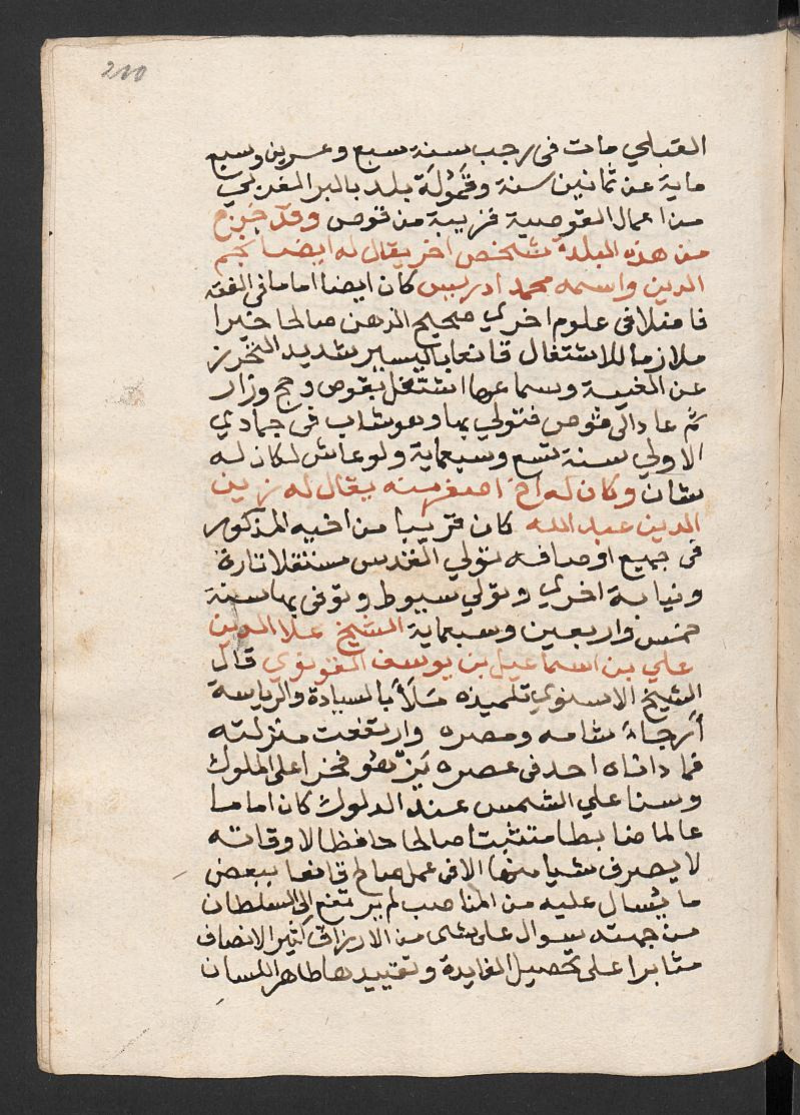 210
القبلي مات في رجب سنة سبع وعشرين وسبع
ماية عن ثمانين سنة وقَمُولَة بلد بالبر المغربي
من اعمال القوصية قريبة من قوص وقد خرج
من هذه البلدة شخص اخر يقال له ايضا نجم
الدين واسمه محمد ادريس كان ايضا اماما في الفقه
فاضلا في علوم اخري صحيح الذهن صالحا خيرا
ملازما للاشتغال قانعا باليسير شديد التحرز
عن الغيبة وسماعها اشتغل بقوص وحج وزار
ثم عاد الي قوص فتولي بها وهو شاب في جمادي
الاولي سنة تسع وسبعماية ولو عاش لكان له
شان وكان له اخ اصغر منه يقال له زين
الدين عبد الله كان قريبا من اخيه المذكور
في جميع اوصافه تولي القدس مستقلا تارة
ونيابة اخري وتولي سيوط وتوفي بها سنة
خمس واربعين وسبعماية الشيخ علا الدين
علي بن اسماعيل بن يوسف القونوي قال
الشيخ الاسنوي تلميذه مَلَأ بالسيادة والرياسة
أَرجاءَ شامه ومصره وارتفعت منزلته
فما داناه احد في عصره يزهو فخرا علي الملوك
وسنا علي الشمس عند الدلوك كان اماما
عالما ضابطا متثبتا صالحا حافظا لاوقاته
لا يصرف شيا منها الا في عمل صالح قانعا ببعض
ما يُسال عليه من المناصب لم يرتفع الي السلطان
من جهته سوال علي شي من الارزاق كثير الانصاف
مثابرا علي تحصيل الفايدة وتقييدها طاهر اللسان